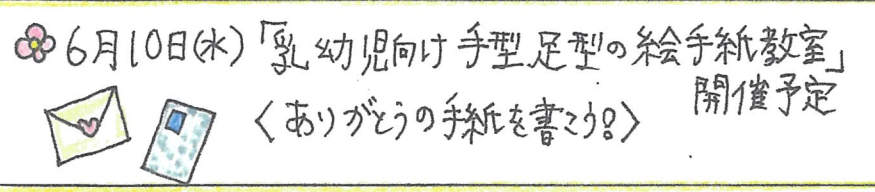 6月10日(水)「乳幼児向け手型足型の絵手紙教室」
開催予定
〈ありがとうの手紙を書こう!〉